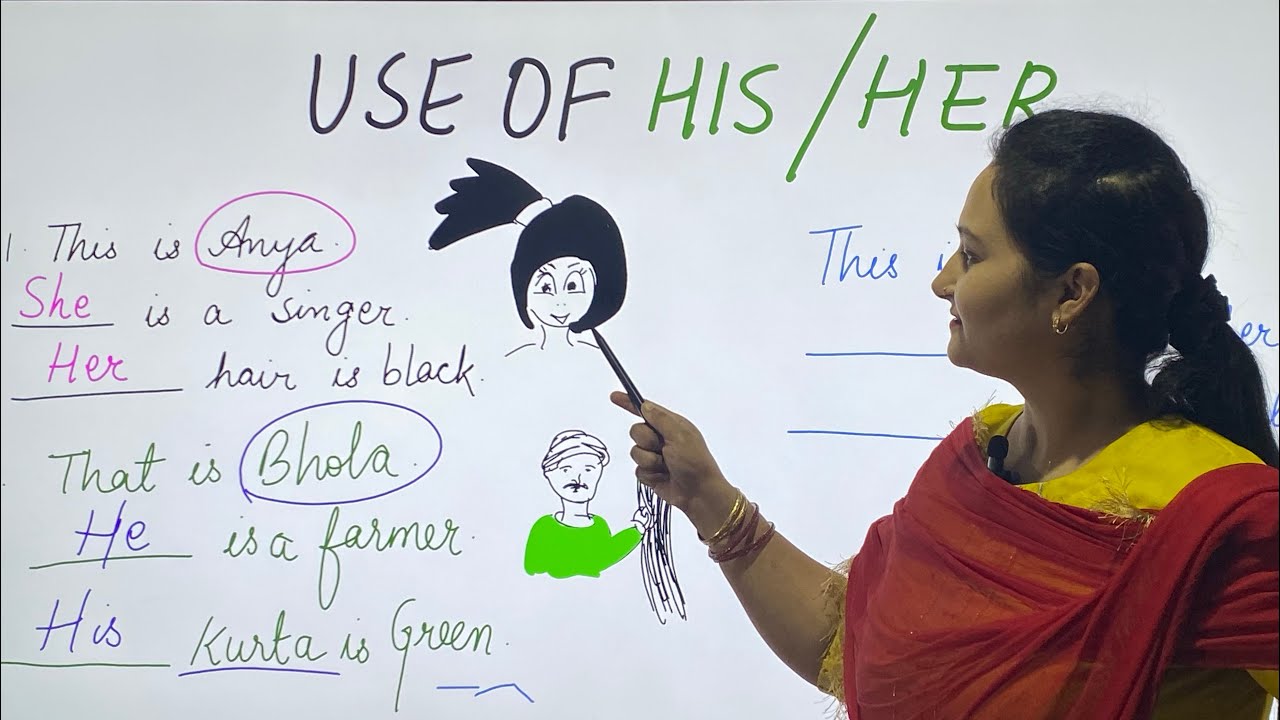 USE OF HIS/HER
1. This is Anya.
She is a singer.
Her hair is black.
That is Bhola.
He is a farmer.
His Kurta is Green.
This